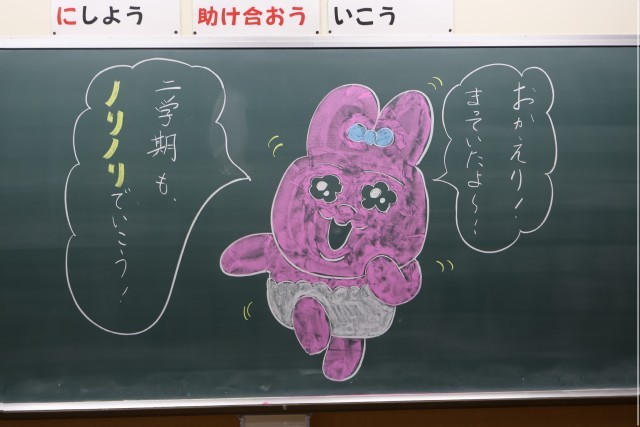 にしよう
助け合おう
いこう
おかえり!
まっていたよ〜!
二学期も、
ノリノリでいこう!